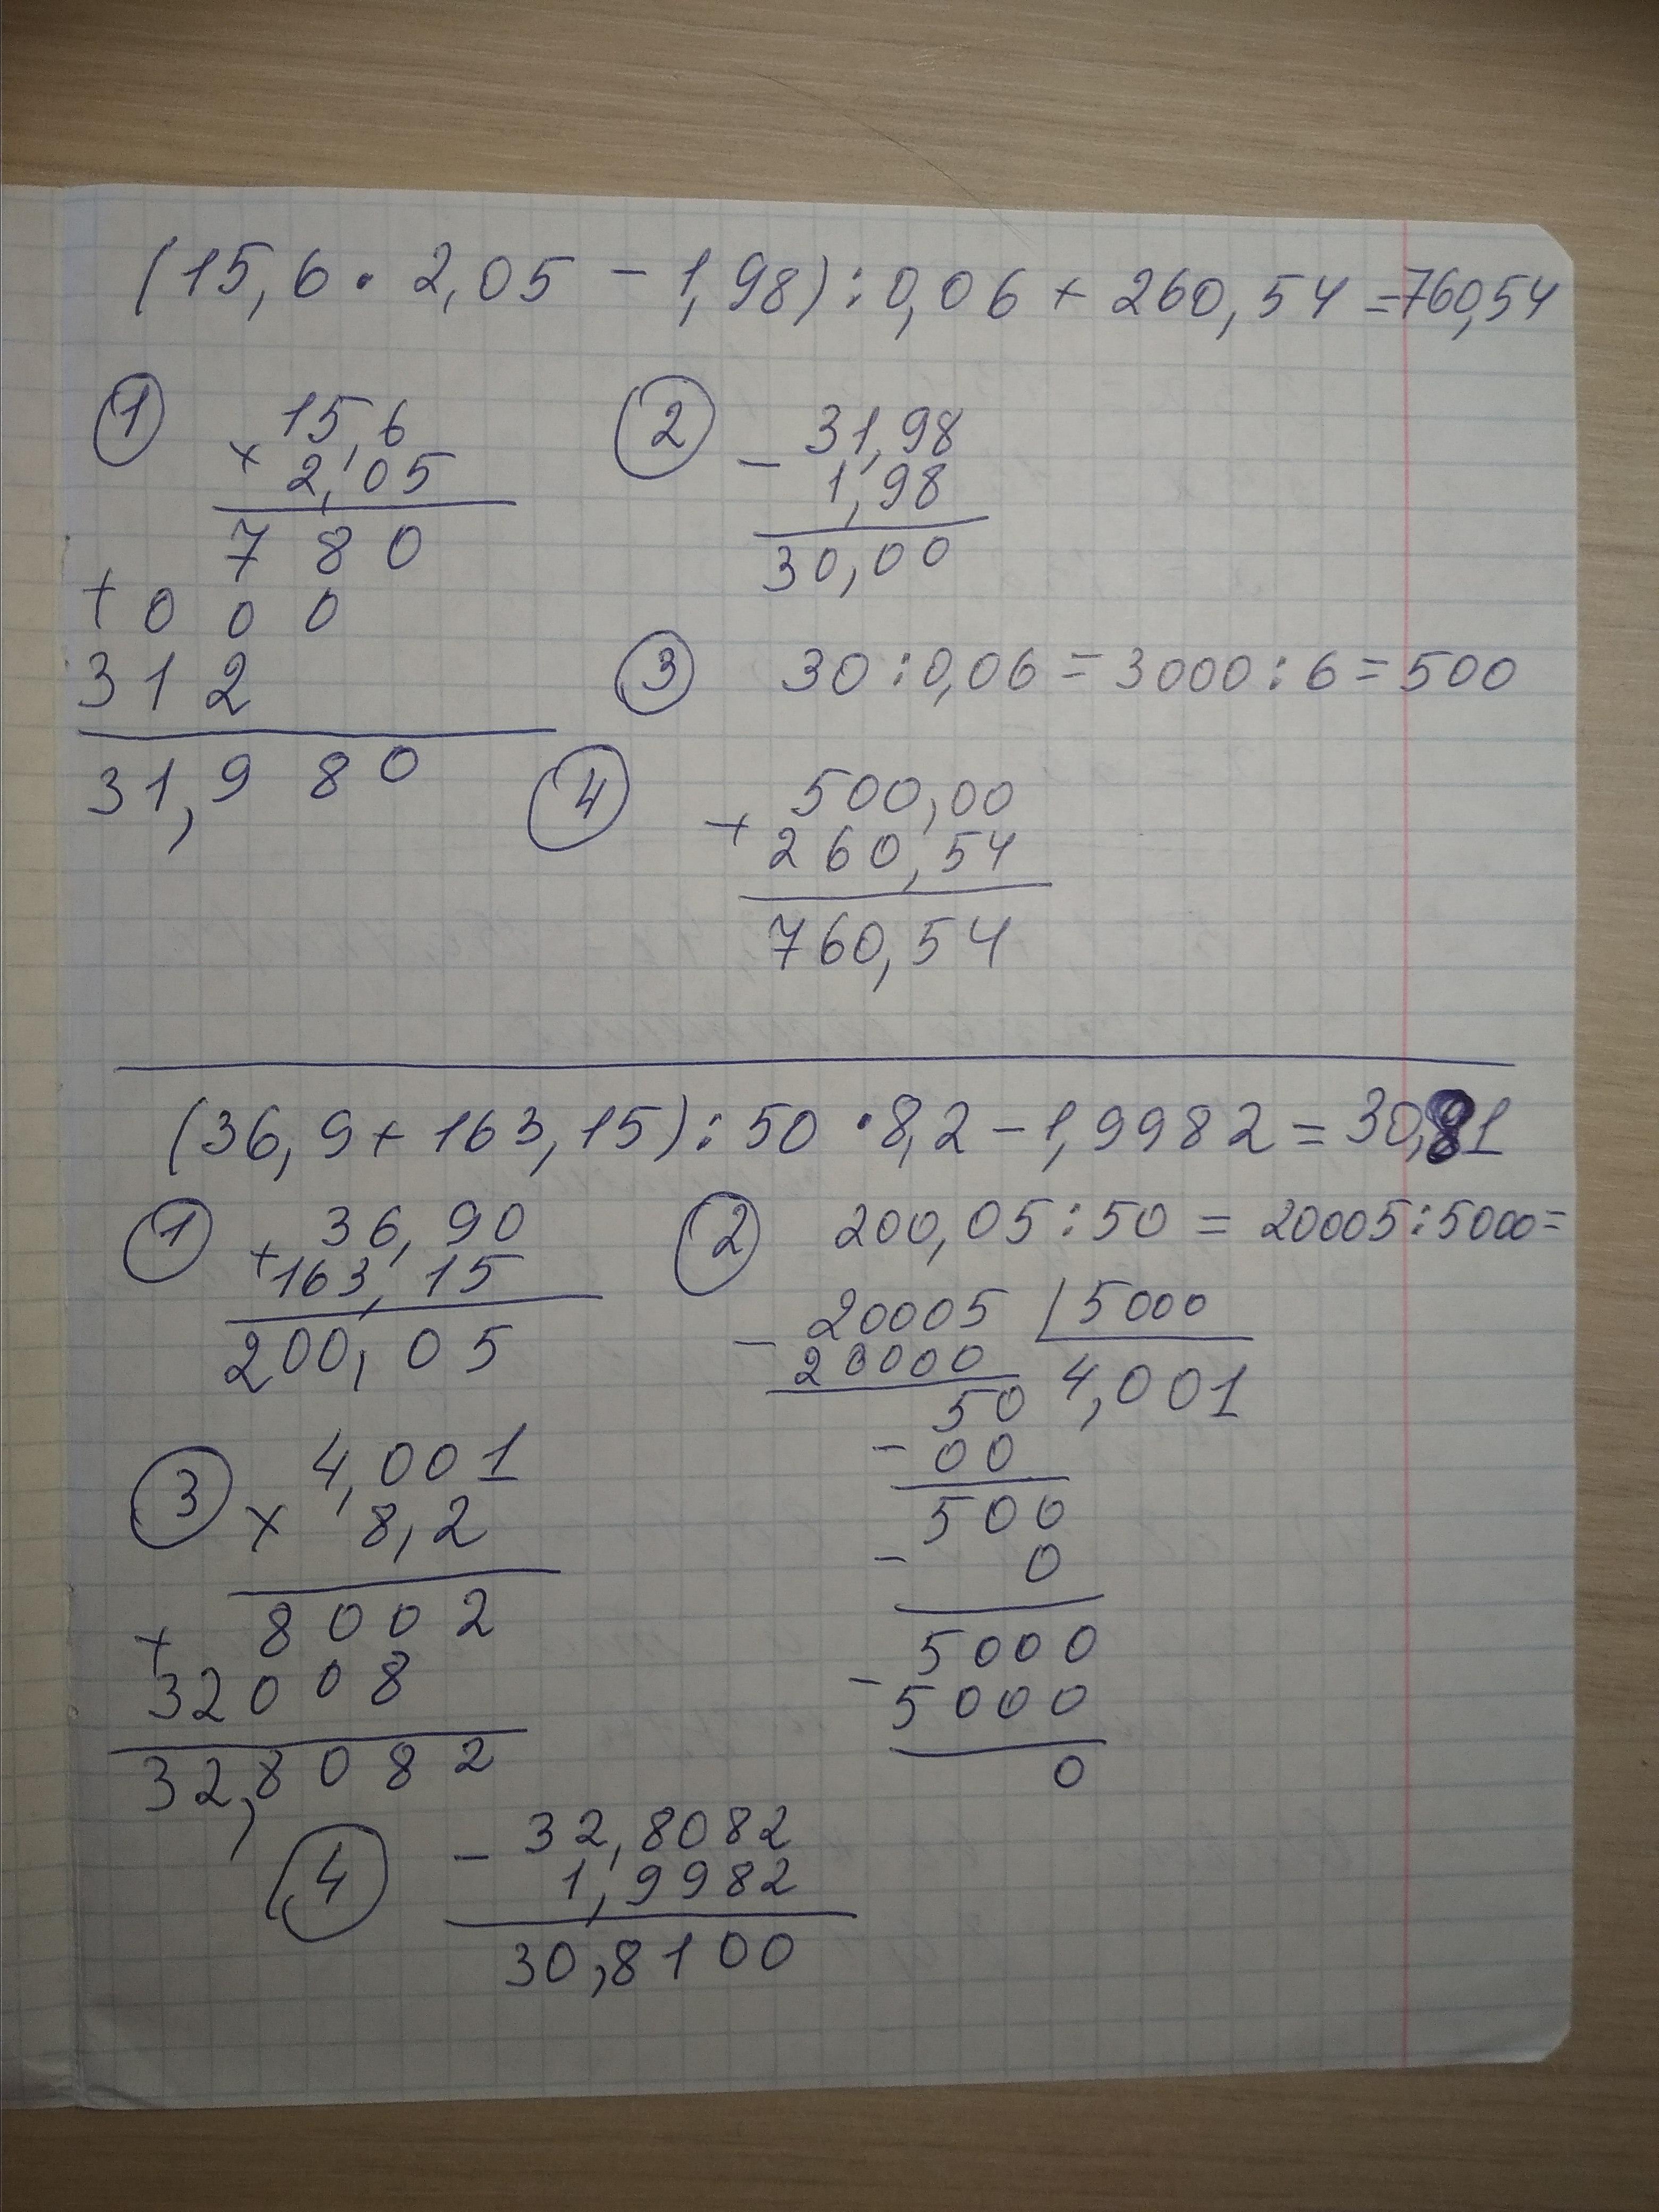 (15,6 · 2,05 - 1,98) : 0,06 + 260,54 = 760,54
①
15,6
×
2,05
780
+
000
312
31,980
②
31,98
-
1,98
30,00
③ 30 : 0,06 = 3000 : 6 = 500
④
500,00
+
260,54
760,54
(36,9 + 163,15) : 50 · 8,2 - 1,9982 = 30,81
①
36,90
+
163,15
200,05
② 200,05 : 50 = 20005 : 5000 =
20005 | 5000
-
20000
4,001
50
-
00
500
-
0
5000
-
5000
0
③
4,001
×
8,2
8002
+
32008
32,8082
④
32,8082
-
1,9982
30,8100